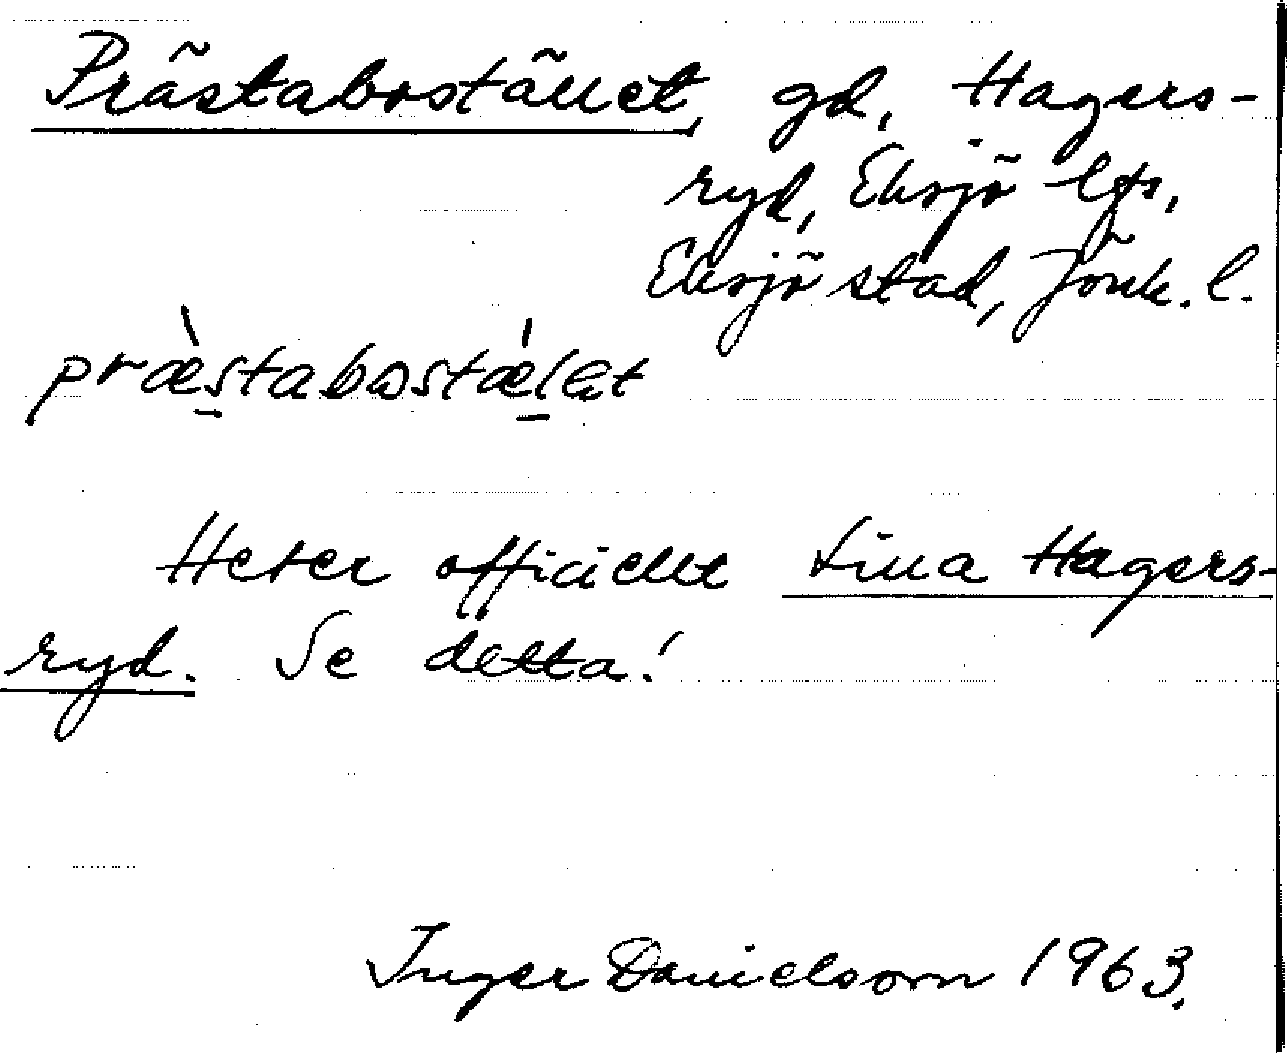 Prästabostället, gd, Hagers-
ryd, Eksjö lfs,
Eksjö stad, Jönk. l.
præ̀stabostǽlet
Heter officiellt Lilla Hagers-
ryd. Se detta!
Inger Danielsson 1963.